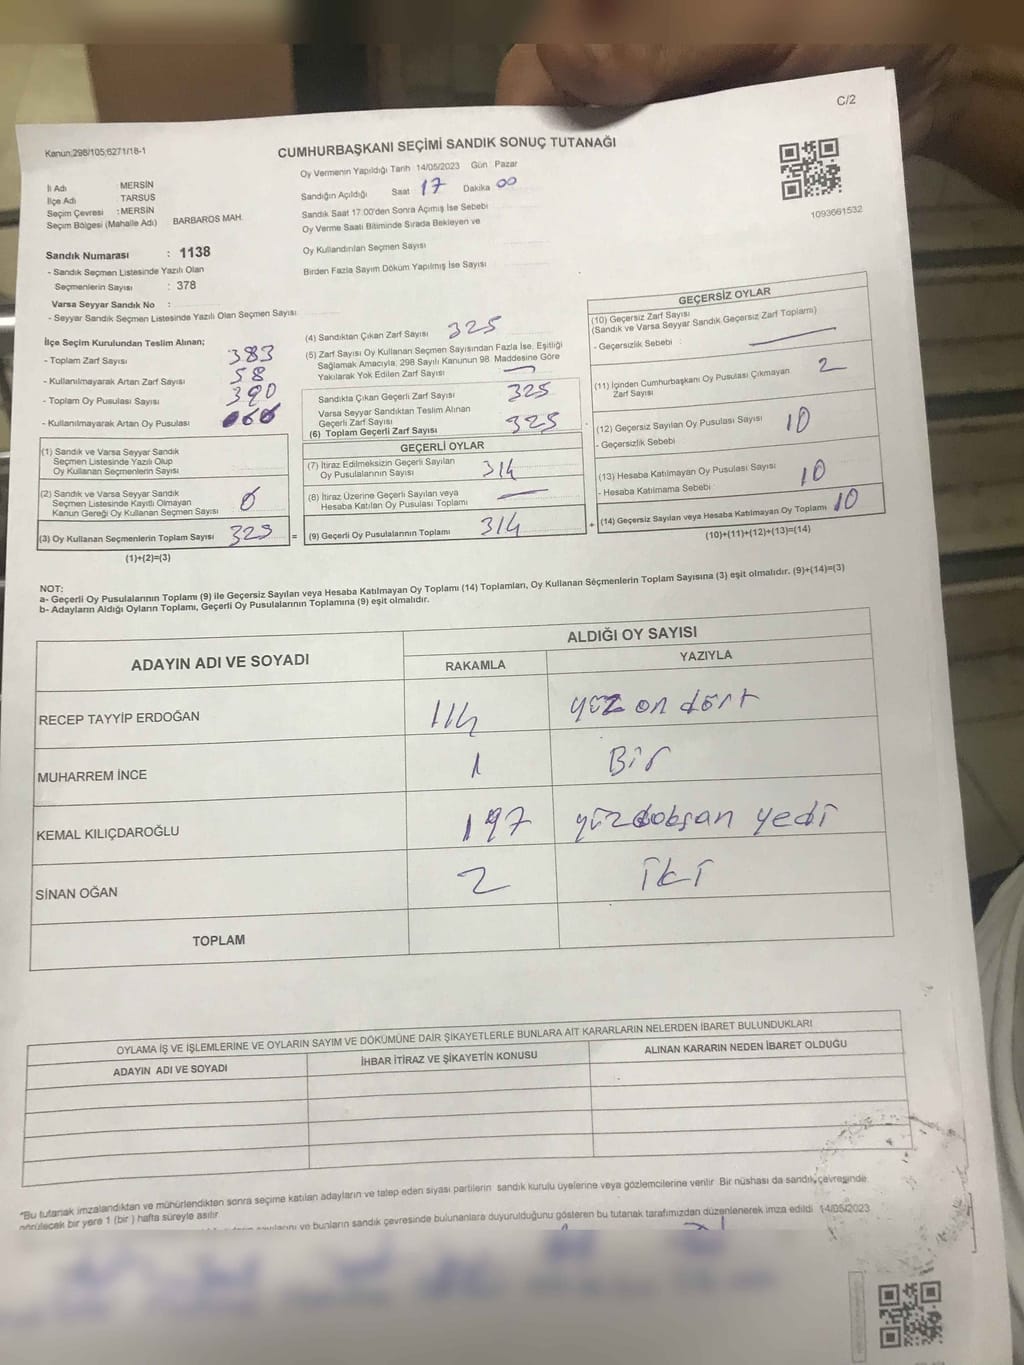 C/2
Kanun:298/105;6271/18-1
CUMHURBAŞKANI SEÇİMİ SANDIK SONUÇ TUTANAĞI
1093661532
İl Adı : MERSİN
İlçe Adı TARSUS
Seçim Çevresi : MERSİN
Seçim Bölgesi (Mahalle Adı) BARBAROS MAH.
Sandık Numarası : 1138
- Sandık Seçmen Listesinde Yazılı Olan
Seçmenlerin Sayısı : 378
Varsa Seyyar Sandık No :
- Seyyar Sandık Seçmen Listesinde Yazılı Olan Seçmen Sayısı
Oy Vermenin Yapıldığı Tarih : 14/05/2023 Gün Pazar
Sandığın Açıldığı Saat 17 Dakika 00
Sandık Saat 17:00'den Sonra Açımış İse Sebebi
Oy Verme Saati Bitiminde Sırada Bekleyen ve
Oy Kullandırılan Seçmen Sayısı
Birden Fazla Sayım Döküm Yapılmış İse Sayısı
İlçe Seçim Kurulundan Teslim Alınan;
- Toplam Zarf Sayısı 383
- Kullanılmayarak Artan Zarf Sayısı 58
- Toplam Oy Pusulası Sayısı 390
- Kullanılmayarak Artan Oy Pusulası
(1) Sandık ve Varsa Seyyar Sandık
Seçmen Listesinde Yazılı Olup
Oy Kullanan Seçmenlerin Sayısı
(2) Sandık ve Varsa Seyyar Sandık
Seçmen Listesinde Kayıtlı Olmayan
Kanun Gereği Oy Kullanan Seçmen Sayısı 0
(3) Oy Kullanan Seçmenlerin Toplam Sayısı 325 =
(1)+(2)=(3)
(4) Sandıktan Çıkan Zarf Sayısı 325
(5) Zarf Sayısı Oy Kullanan Seçmen Sayısından Fazla İse, Eşitliği
Sağlamak Amacıyla, 298 Sayılı Kanunun 98. Maddesine Göre
Yakılarak Yok Edilen Zarf Sayısı —
Sandıkta Çıkan Geçerli Zarf Sayısı 325
Varsa Seyyar Sandıktan Teslim Alınan
Geçerli Zarf Sayısı
(6) Toplam Geçerli Zarf Sayısı 325
GEÇERLİ OYLAR
(7) İtiraz Edilmeksizin Geçerli Sayılan
Oy Pusulasının Sayısı 314
(8) İtiraz Üzerine Geçerli Sayılan veya
Hesaba Katılan Oy Pusulası Toplamı —
(9) Geçerli Oy Pusulalarının Toplamı 314 +
GEÇERSİZ OYLAR
(10) Geçersiz Zarf Sayısı
(Sandık ve Varsa Seyyar Sandık Geçersiz Zarf Toplamı)
- Geçersizlik Sebebi : —
(11) İçinden Cumhurbaşkanı Oy Pusulası Çıkmayan
Zarf Sayısı 2
(12) Geçersiz Sayılan Oy Pusulası Sayısı 10
- Geçersizlik Sebebi
(13) Hesaba Katılmayan Oy Pusulası Sayısı 10
- Hesaba Katılmama Sebebi
(14) Geçersiz Sayılan veya Hesaba Katılmayan Oy Toplamı 10
(10)+(11)+(12)+(13)=(14)
NOT:
a- Geçerli Oy Pusulalarının Toplamı (9) ile Geçersiz Sayılan veya Hesaba Katılmayan Oy Toplamı (14) Toplamları, Oy Kullanan Seçmenlerin Toplam Sayısına (3) eşit olmalıdır. (9)+(14)=(3)
b- Adayların Aldığı Oyların Toplamı, Geçerli Oy Pusulalarının Toplamına (9) eşit olmalıdır.
ADAYIN ADI VE SOYADI
ALDIĞI OY SAYISI
RAKAMLA YAZIYLA
RECEP TAYYİP ERDOĞAN 114 yüz on dört
MUHARREM İNCE 1 Bir
KEMAL KILIÇDAROĞLU 197 yüzdoksan yedi
SİNAN OĞAN 2 iki
TOPLAM
OYLAMA İŞ VE İŞLEMLERİNE VE OYLARIN SAYIM VE DÖKÜMÜNE DAİR ŞİKAYETLERLE BUNLARA AİT KARARLARIN NELERDEN İBARET BULUNDUKLARI
ADAYIN ADI VE SOYADI İHBAR İTİRAZ VE ŞİKAYETİN KONUSU ALINAN KARARIN NEDEN İBARET OLDUĞU
*Bu tutanak imzalandıktan ve mühürlendikten sonra seçime katılan adayların ve talep eden siyasi partilerin sandık kurulu üyelerine veya gözlemcilerine verilir. Bir nüshası da sandık çevresinde
görülecek bir yere 1 (bir) hafta süreyle asılır.
ve bunların sandık çevresinde bulunanlara duyurulduğunu gösteren bu tutanak tarafımızdan düzenlenerek imza edildi. 14/05/2023